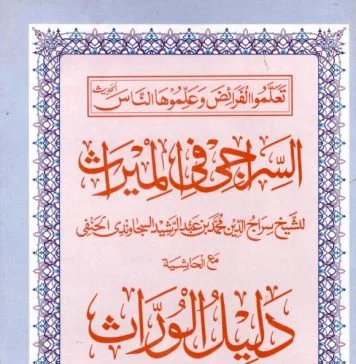 تَعَلَّمُوا الْفَرَائِضَ وَعَلِّمُوْهَا النَّاسَ الحدیث
السِّرَاجِی فِی الْمِیْرَاث
للشیخ سراج الدین محمد بن عبد الرشید السجاوندی الحنفی
مع الحاشیة
دَلِیْلُ الْوُرَّاث